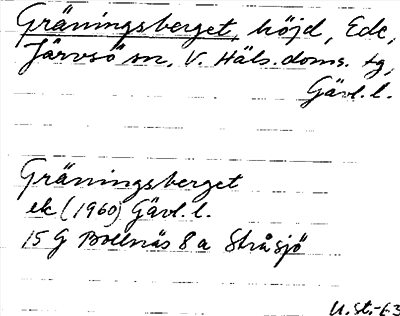 Gräningsberget, höjd, Ede,
Järvsö sn, V. Häls. doms. tg,
Gävl. l.
Gräningsberget
ek (1960) Gävl. l.
15 G Bollnäs 8 a Stråsjö
U. st. -63